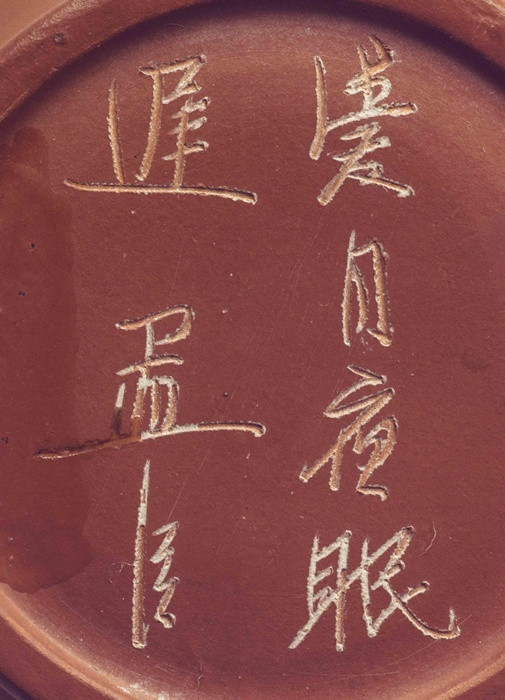 愛月夜眠
遲 孟臣